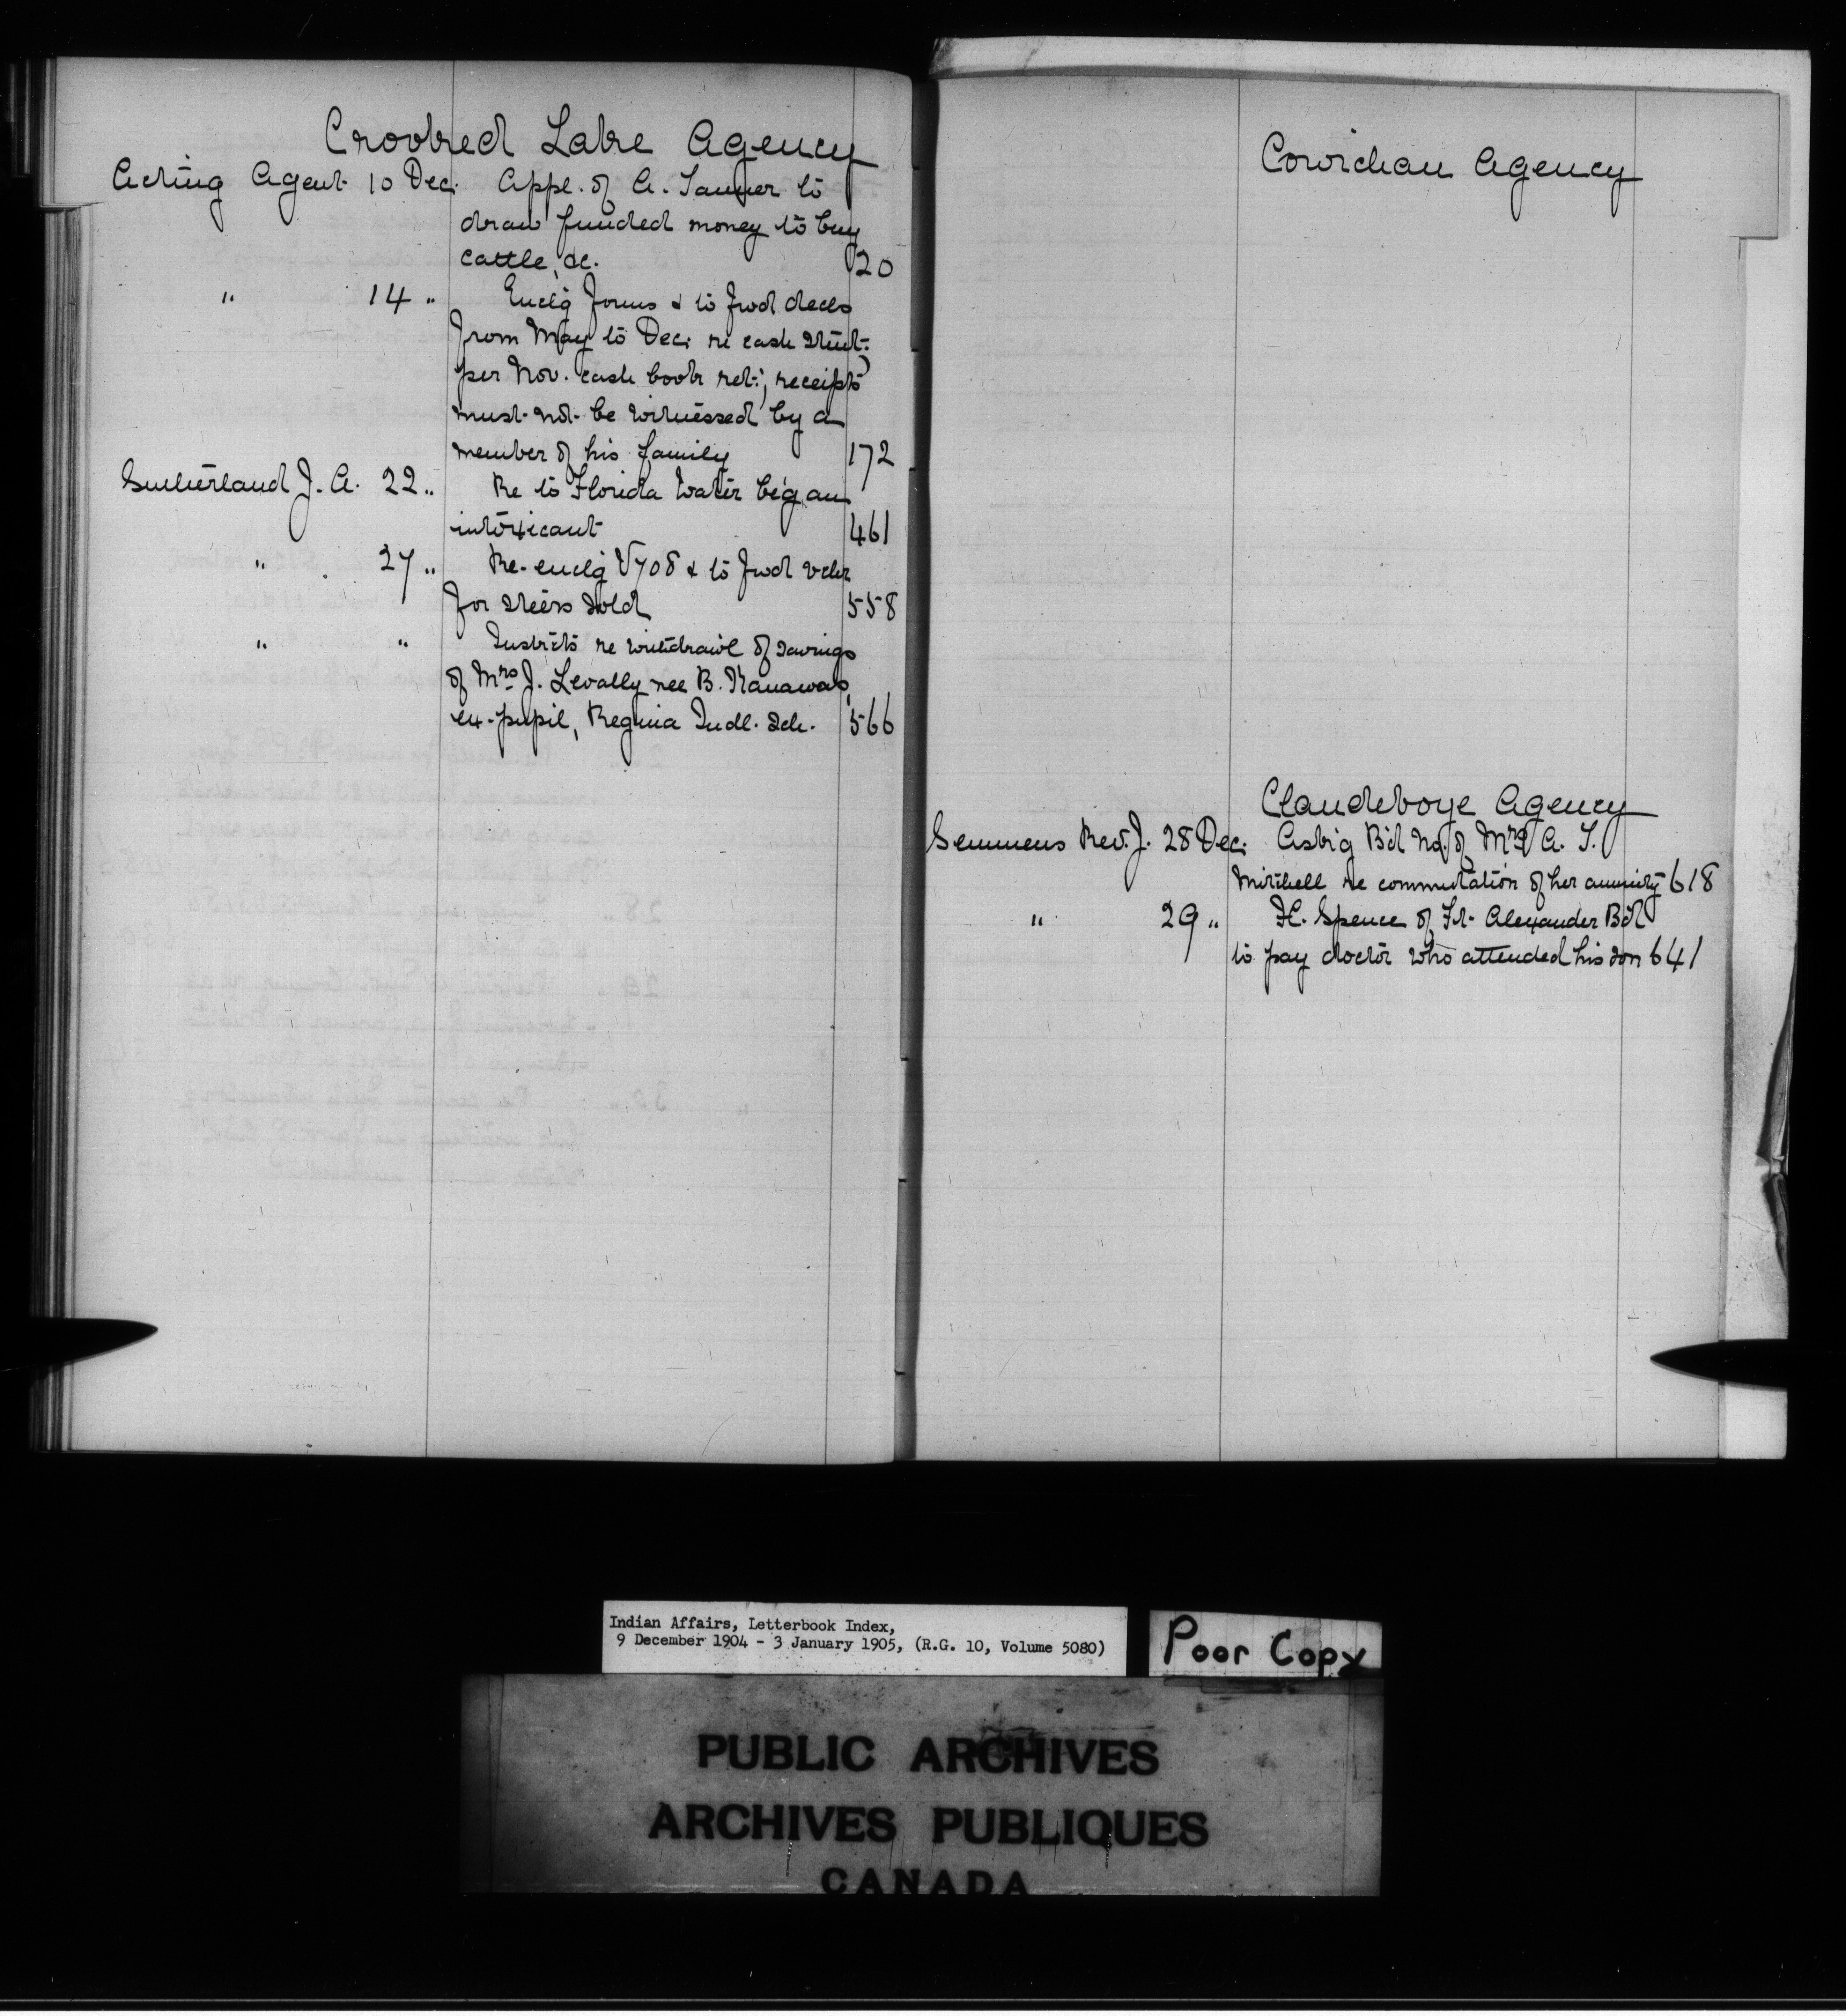 Crooked Lake Agency
Acting Agent 10 Dec. Appl. of A. Tanner to
draw funded money to buy
cattle, &c. 20
" 14 " Enclg forms & to fwd decls
from May to Dec. re cash
per Nov. cash book ret.; receipts
must not be witnessed by a
member of his family 172
Sutherland J. A. 22 " Re to Florida Water beg an
intoxicant 461
" 27 " Re-enclg V708 & to fwd vchr
for steers sold 558
" " Instrcts re withdrawl of savings
of Mrs J. Levally nee B.
ex-pupil, Regina Indl. Sch. 566
Cowichan Agency
Clandeboye Agency
Semmens Rev. J. 28 Dec. Askg Bd No. of Mrs A. T.
Mitchell re commutation of her annuity 618
" 29 " H. Spence of Ft. Alexander Bd
to pay doctor who attended his son 641
Indian Affairs, Letterbook Index,
9 December 1904 - 3 January 1905, (R.G. 10, Volume 5080)
Poor Copy
PUBLIC ARCHIVES
ARCHIVES PUBLIQUES
CANADA